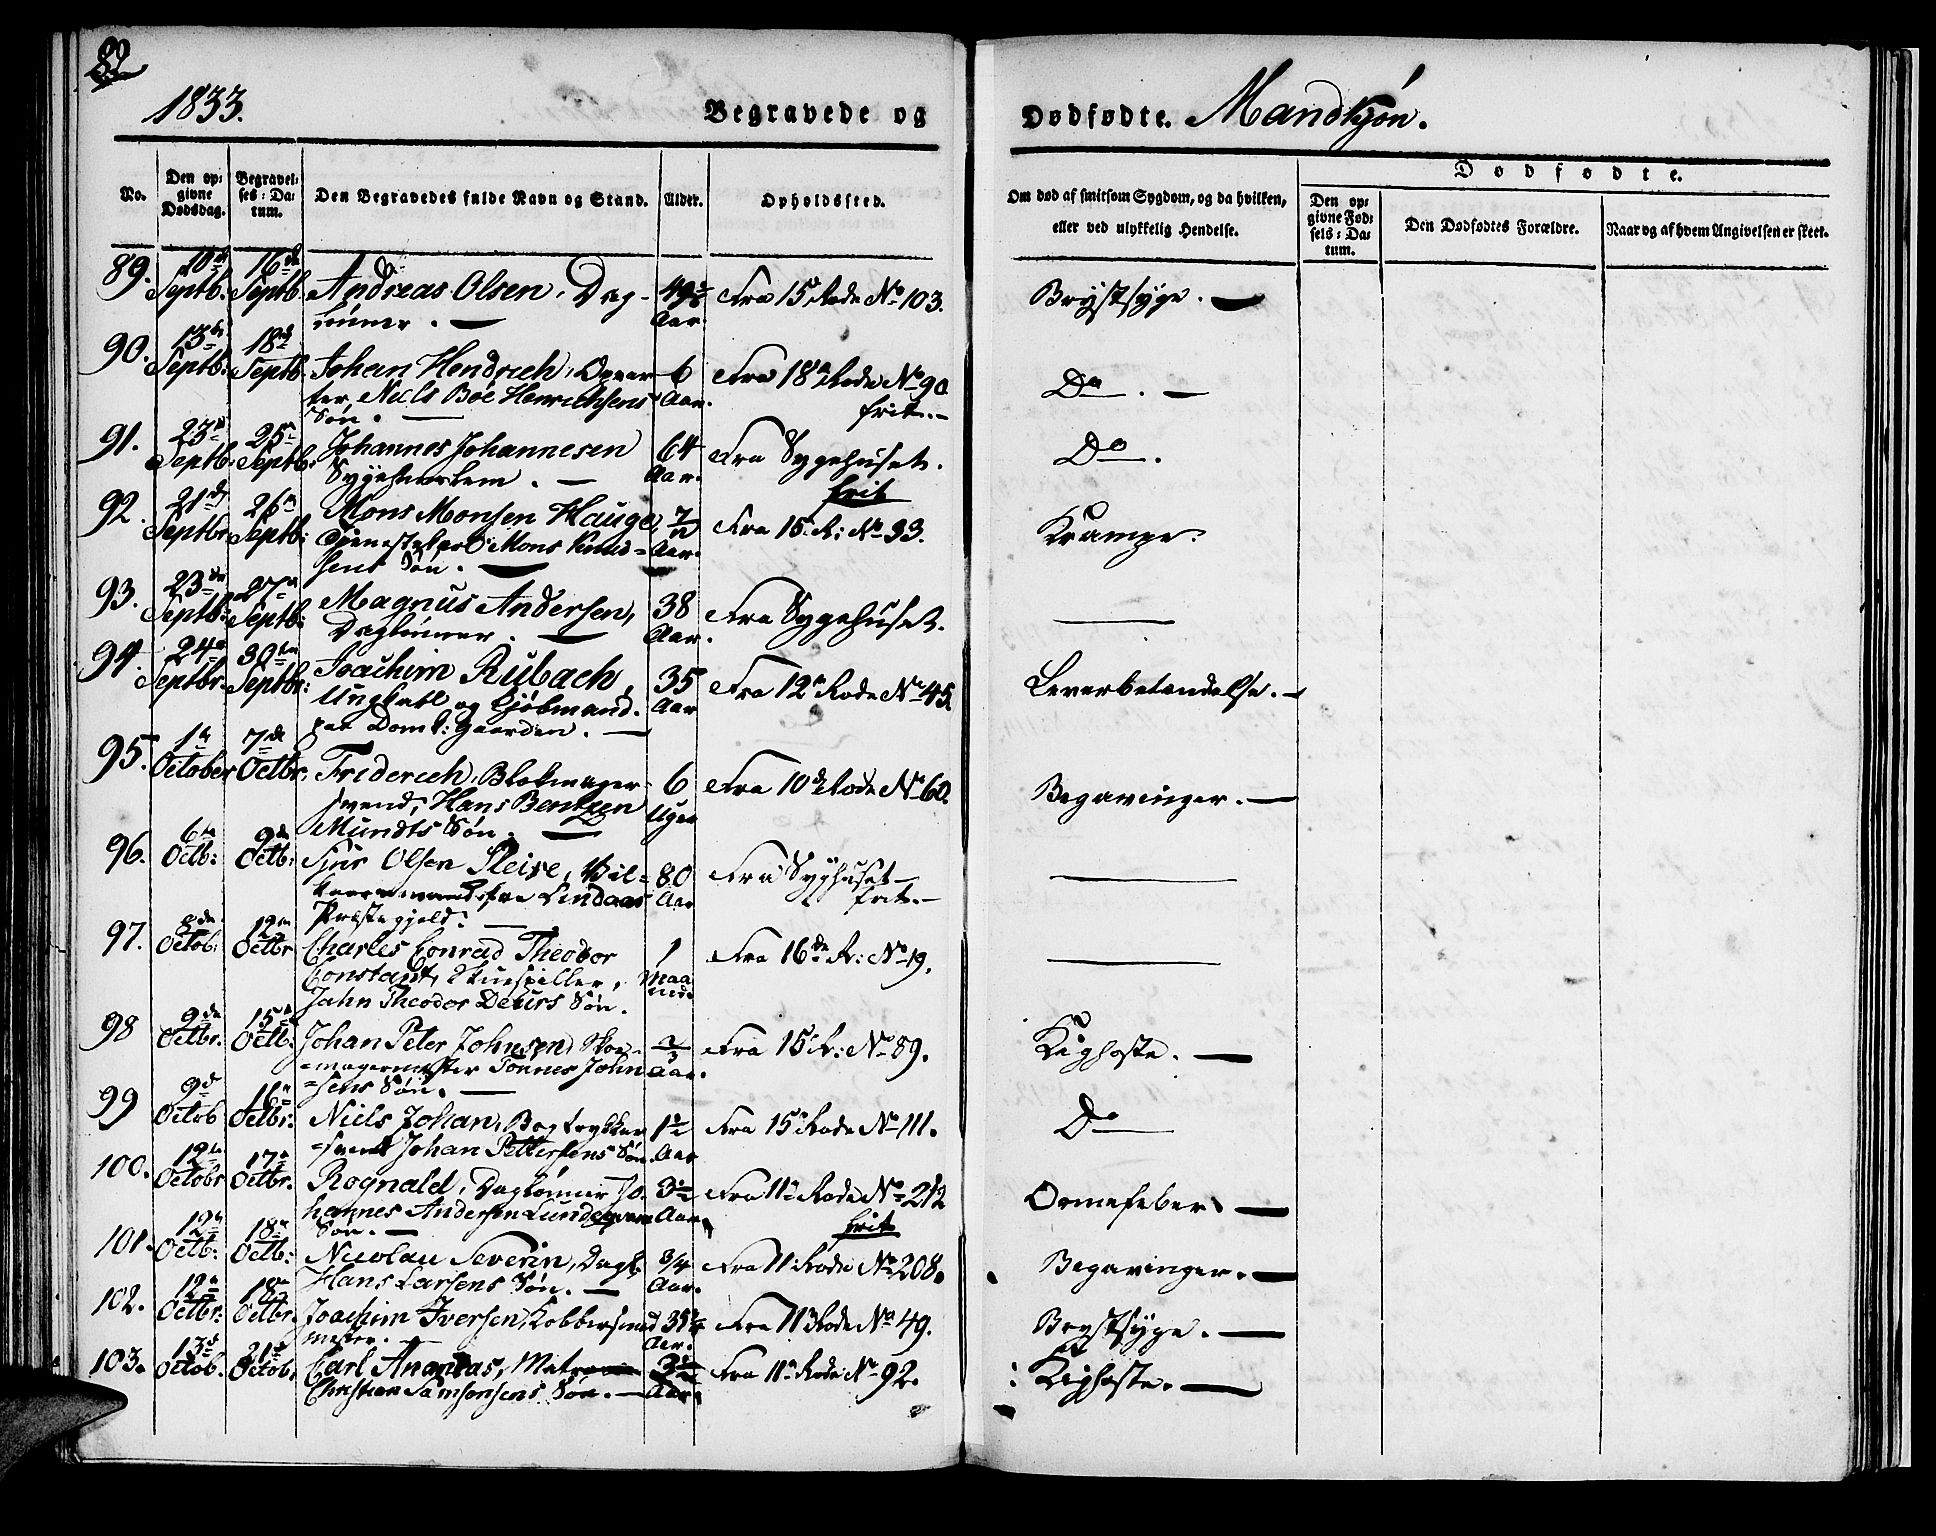 82
1833.
Begravede og
Dødfødte. Mandkjøn.
No.
Den op-
givne
Dødsdag.
Begravel-
ses-Da-
tum.
Den Begravedes fulde Navn og Stand.
Alder.
Opholdssted.
Om død af smitsom Sygdom, og da hvilken,
eller ved ulykkelig Hendelse.
Dødfødte.
Den op-
givne Fød-
sels-Da-
tum.
Den Dødfødtes Forældre.
Naar og af hvem Angivelsen er skeet.
89. 10de Septb: 16de Septb. Andreas Olsen, Dag- Aar. Fra 15de Rode No 103. Brystsyge.
lønner.
90. 13de Septb: 18de Septb. Johan Hendrich, Opvar- 6 Aar. Fra 18de Rode No 90 frit. Do.
ter, Niels Böe Henrichsens
Søn.
91. 23de Septb: 25de Septb: Johannes Johannesen 64 Aar. Fra Sygehuset. Do.
Sygehuuslem.
frit
92. 21de Septbr 26de Septb: Mons Monsen Hauge, Aar. Fra 15 R: No 33. Krampe.
Tjenestekarl Mons Knud-
sens Søn.
93. 23de Septb: 27de Septb: Magnus Andersen, 38 Aar. Fra Sygehuset.
Daglønner.
94. 24de Septbr. 30te Septbr: Joachim Rubach, 35 Aar Fra 12te Rode No 45. Leverbetændelse.
Ungkarl og Kjøbmand
paa Domk: gaarden.
95. 1te October 7de Octbr: Friderich, Blokmager- 6 Uger Fra 10de Rode No 60. Begavinger.
svend, Hans Bentzen
Mundts Søn.
96. 6te Octb: 9de Octb: Sjur Olsen Fleise, 80 Aar Fra Syghuset frit.
fra Lindaas
Præstegjeld.
97. 8de Octob: 12te Octbr Charles Conrad Theodor 1 Maaned. Fra 16de R: No 19.
Constant, Skuespiller,
Jahn Theodor Deurs Søn.
98 9de Octbr. 15de Octb: Johan Peter Johnsen, Skoe- 2/3 Aar. Fra 15 R: No 89. Kighoste.
magermester Tønnes John
sens Søn.
99 9de Octob 16de Octbr: Niels Johan, Bogtrykker 1½ Aar Fra 15de Rode No 111. Do
svend Johan Pettersens Søn.
100. 12te Octobr 17de Octbr. Rognald, Daglønner Jo- 3½ Aar. Fra 11te Rode No 212 Ormefeber.
hannes Andersen Søn.
frit
101. 12te Octb: 18de Octb: Nicolau Severin, Dagl. 3/4 Aar. Fra 11 Rode No 208. Begavinger.
Hans Larsens Søn.
102. 12te Octbr: 18de Octbr. Joachim Iversen, Kobbersmed Aar. Fra 11 Rode No 49. Brystsyge.
mester.
103. 13de Octob. 21de Octob. Carl Andreas, Matros Aar. Fra 11te Rode No 92. Kighoste.
Christian Samsonsens Søn.